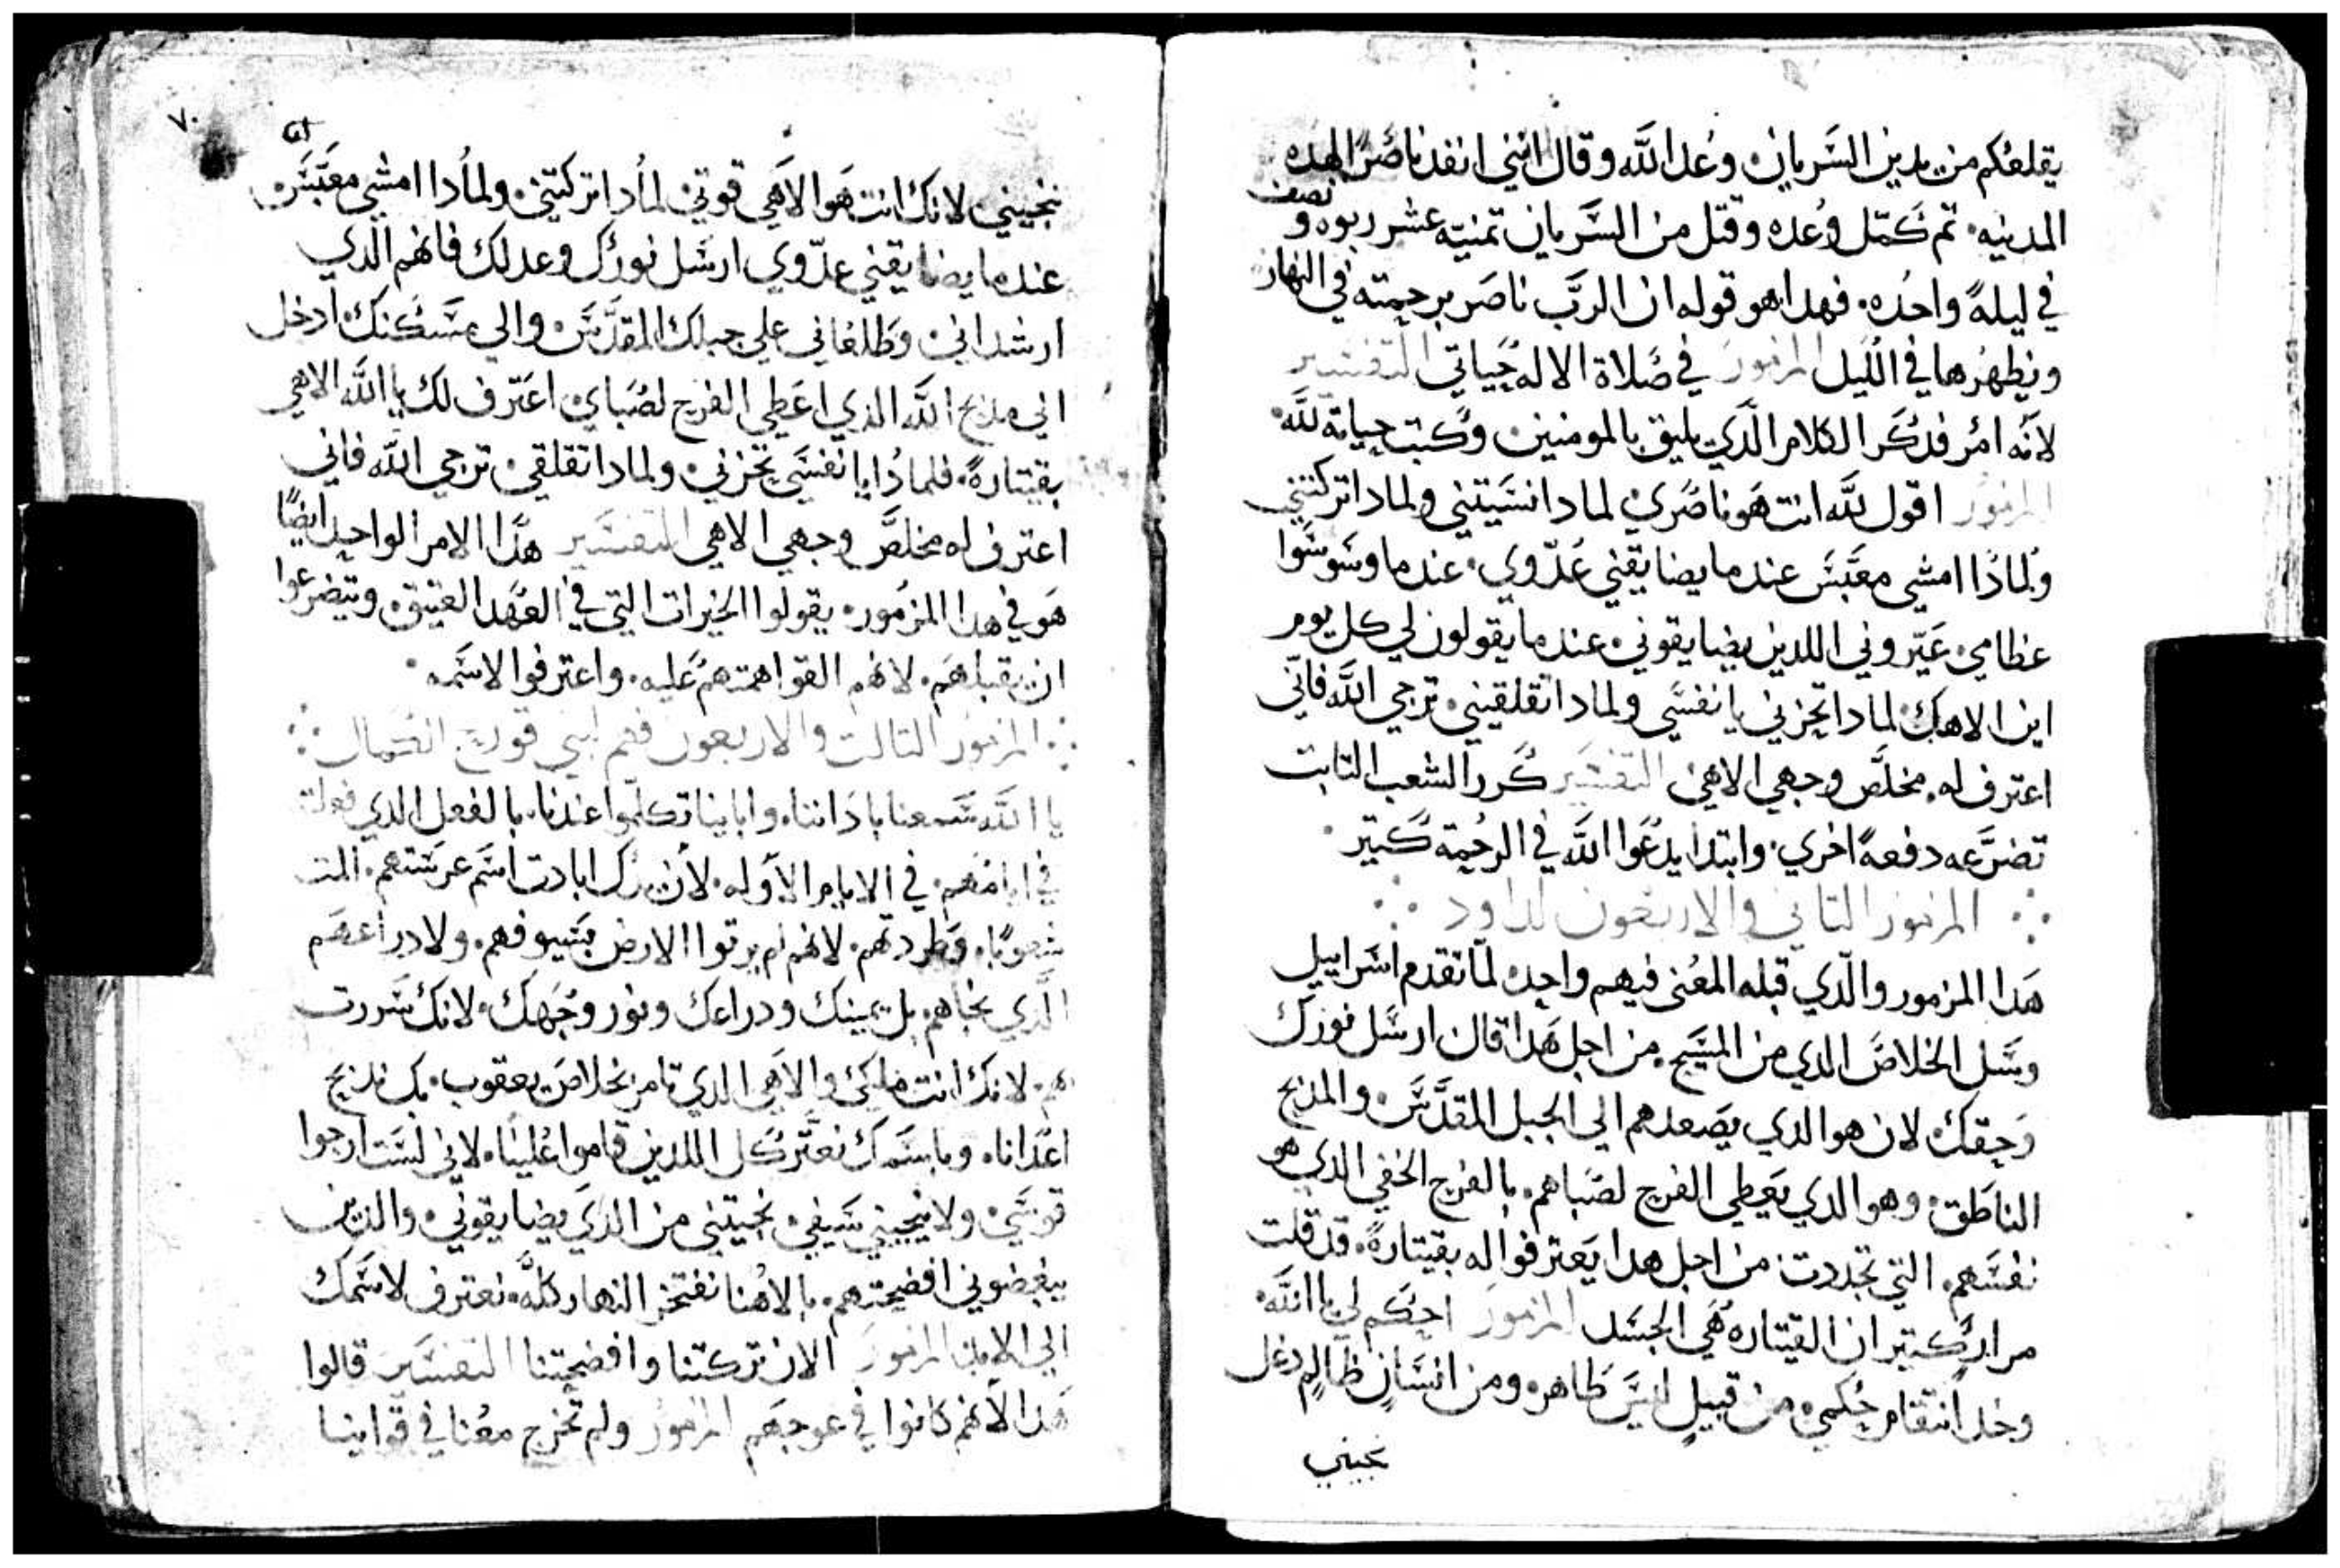 يقلعكم من يدين السريان وعد الله وقال انني انفد ناصرا لهده
نصف
المدينه تم كمّل وعده وقتل من السريان تمنيّه عشر ربوه و
في ليلةً واحده. فهدا هو قوله ان الربّ ناصر برحمته في النهار
ونطهرها في الليل المزمور في صلاة الاله حياتي التفسير
لانّه امر فدكر الكلام الّدي يليق بالمومنين وكبت حياته للّه
المزمور اقول للّه انت هو ناصري لمادا نسيتني ولمادا تركتني
ولمادا امشي معبّس عندما يضايقني عدّوي. عندما وسوسوا
عظامي عيّروني اللدين يضايقوني عندما يقولون لي كل يوم
اين الاهك لمادا تحزني يا نفسي ولمادا تقلقيني ترجي اللّه فانّي
اعترف له. مخلّص وجهي الاهي التفسير كرر الشعب التابت
تضرّعه دفعةً اخري. وابتدا يدعوا اللّه في الرحمة كتير
المزمور التاني والاربعون لداود
هدا المزمور والّدي قبله المعنى فيهم واحد لمّا تقدم اسراييل
وسل الخلاص الدي من المسيح. من اجل هدا قال ارسل نورك
وحقك لان هو الدي يصعدهم الي الجبل المقدّس والمدبح
الناطق وهو الدي يعطي الفرح لصباهم. بالفرح الخفي الدي هو
نفسهم. التي تجددت من اجل هدا يعترفوا له بقيتارةً. قد قلت
مرار كتير ان القيتاره هي الجسد المزمور احكم لي يا اللّه
وخد انتقام حكمي من قبيل ليس طاهره ومن انسان ظالم دغل
نجيني
٧٠
نجيني لانك انت هو الاهي قوتي لمادا تركتني ولمادا امشي معبّس
عندما يضايقني عدّوي ارسل نورك وعدلك فانهم الّدي
ارشداني وطلعاني علي جبلك المقدّس والي مسكنك ادخل
الي مدبح اللّه الدي اعطي الفرح لصباي اعترف لك يا اللّه الاهي
بقيتارةً. فلمادا يا نفسي تحزني ولمادا تقلقي ترجي اللّه فاني
اعترف له مخلّص وجهي الاهي التفسير هدا الامر الواحد ايضًا
هو في هدا المزمور يقولوا الخيرات التي في العهد العتيق ويتضرعوا
ان يقبلهم. لانهم القوا همتهم عليه. واعترفوا لاسمه
المزمور التالت والاربعون فهم لبني قورح الكمال
يا اللّه سمعنا بادانناه وابايناتكلّموا عندنا. بالفعل الدي فعلته
في ايامهم في الايام الاوله لان يدك ابادت امم غرستهم. المت
شعوبًا. وطردتهم. لانهم لم يرتوا الارض بسيوفهم. ولا دراعهم
الّدي نجاهم بل يمينك ودراعك ونور وجهك لانك سررت
بهم لانك انت ملكي والاهي الدي تامر بخلاص يعقوب. بك ندبح
اعدانا. وباسمك نعتّر كل اللدين قاموا علينا. لاني لست ارجوا
قوسي ولا ينجيني سيفي نجيتني من الدي يضايقوني. والدين
يبغضوني افضحتهم. بالاهنا نفتخر النهار كلّه. نعترف لاسمك
الي الابد المزمور الان تركتنا وافضحتنا التفسير قالوا
هدا لانهم كانوا في عوجهم المزمور ولم تخرج معنا في قواتنا